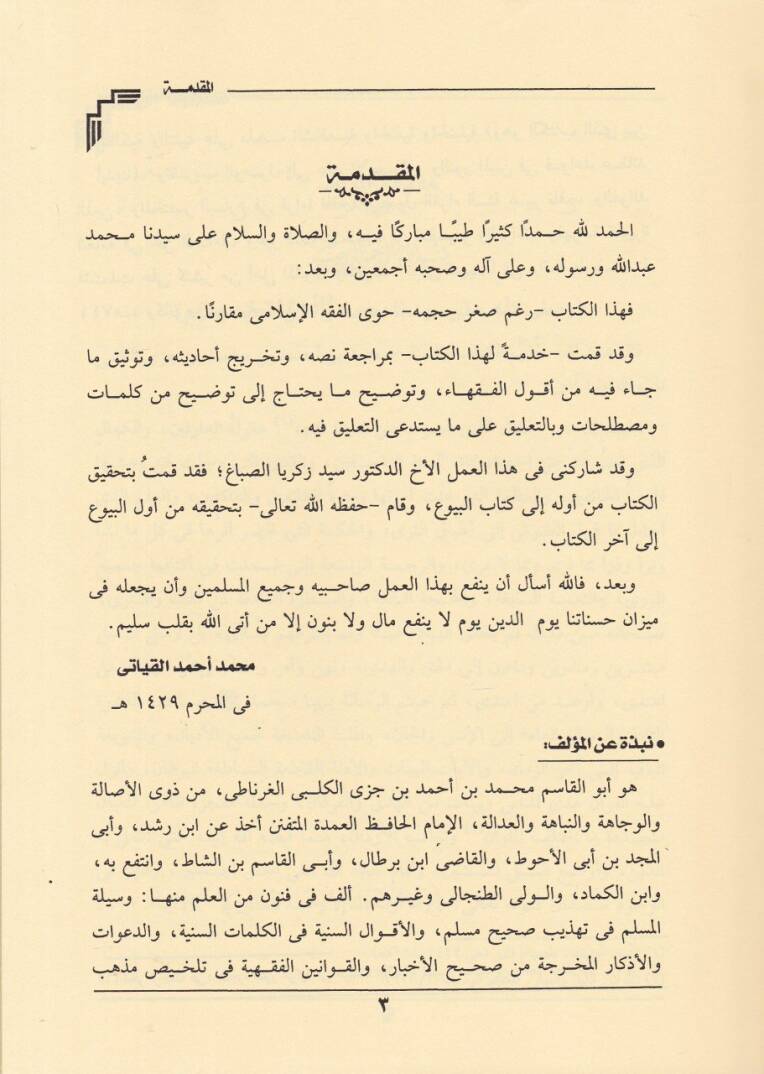 المقدمة
المقدمة
الحمد لله حمدًا كثيرًا طيبًا مباركًا فيه، والصلاة والسلام على سيدنا محمد
عبدالله ورسوله، وعلى آله وصحبه أجمعين، وبعد:
فهذا الكتاب -رغم صغر حجمه- حوى الفقه الإسلامى مقارنًا.
وقد قمت -خدمةً لهذا الكتاب- بمراجعة نصه، وتخريج أحاديثه، وتوثيق ما
جاء فيه من أقول الفقهاء، وتوضيح ما يحتاج إلى توضيح من كلمات
ومصطلحات وبالتعليق على ما يستدعى التعليق فيه.
وقد شاركنى فى هذا العمل الأخ الدكتور سيد زكريا الصباغ؛ فقد قمتُ بتحقيق
الكتاب من أوله إلى كتاب البيوع، وقام -حفظه الله تعالى- بتحقيقه من أول البيوع
إلى آخر الكتاب.
وبعد، فالله أسأل أن ينفع بهذا العمل صاحبيه وجميع المسلمين وأن يجعله فى
ميزان حسناتنا يوم الدين يوم لا ينفع مال ولا بنون إلا من أتى الله بقلب سليم.
محمد أحمد القياتى
فى المحرم ١٤٢٩ هـ
• نبذة عن المؤلف:
هو أبو القاسم محمد بن أحمد بن جزى الكلبى الغرناطى، من ذوى الأصالة
والوجاهة والنباهة والعدالة، الإمام الحافظ العمدة المتفنن أخذ عن ابن رشد، وأبى
المجد بن أبى الأحوط، والقاضى ابن برطال، وأبى القاسم بن الشاط، وانتفع به،
وابن الكماد، والولى الطنجالى وغيرهم. ألف فى فنون من العلم منها: وسيلة
المسلم فى تهذيب صحيح مسلم، والأقوال السنية فى الكلمات السنية، والدعوات
والأذكار المخرجة من صحيح الأخبار، والقوانين الفقهية فى تلخيص مذهب
٣